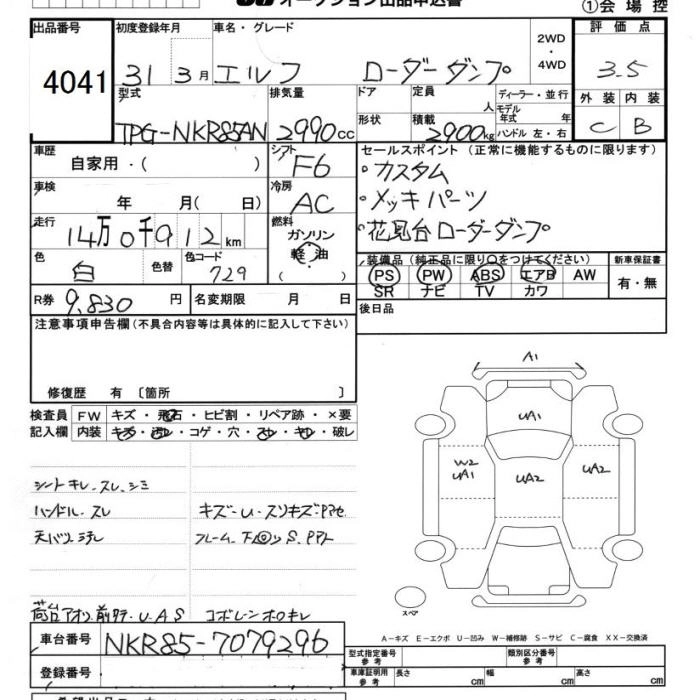 オークション出品申込書 ①会場控
出品番号 初度登録年月 車名・グレード 2WD・4WD 評価点
4041 31 3月 エルフ ローダーダンプ 3.5
型式 排気量 ドア 定員 人 ディーラー・並行 外装 内装
TPG-NKR85AN 2990cc 形状 積載 2900kg モデル年式 年 ハンドル 左・右 C B
車歴 自家用・( ) シフト F6 セールスポイント (正常に機能するものに限ります)
・カスタム
車検 年 月( 日) 冷房 AC ・メッキパーツ
走行 14万0千912km 燃料 ガソリン 軽油 ( ) ・花見台ローダーダンプ
色 白 色替 色コード 729 装備品(純正品に限り○をつけてください) 新車保証書
PS PW ABS エアB AW 有・無
SR ナビ TV カワ
R券 9,830円 名変期限 月 日 後日品
注意事項申告欄(不具合内容等は具体的に記入して下さい)
修復歴 有 〔箇所 〕
検査員記入欄 FW キズ・飛石・ヒビ割・リペア跡・×要
内装 キズ・汚レ・コゲ・穴・スレ・キレ・破レ
A1
UA1
W2 UA1 UA2 UA2
スペア
シートキレ.スレ.シミ
ハンドル.スレ キズ-U-スリキズ
天バリ.汚レ フレーム.下回りS.
荷台アオリ.前 U.A.S
A-キズ E-エクボ U-凹み W-補修跡 S-サビ C-腐食 XX-交換済
車台番号 NKR85-7079296
登録番号
型式指定番号 参考 類別区分番号 参考
車庫証明用 参考 長さ cm 幅 cm 高さ cm